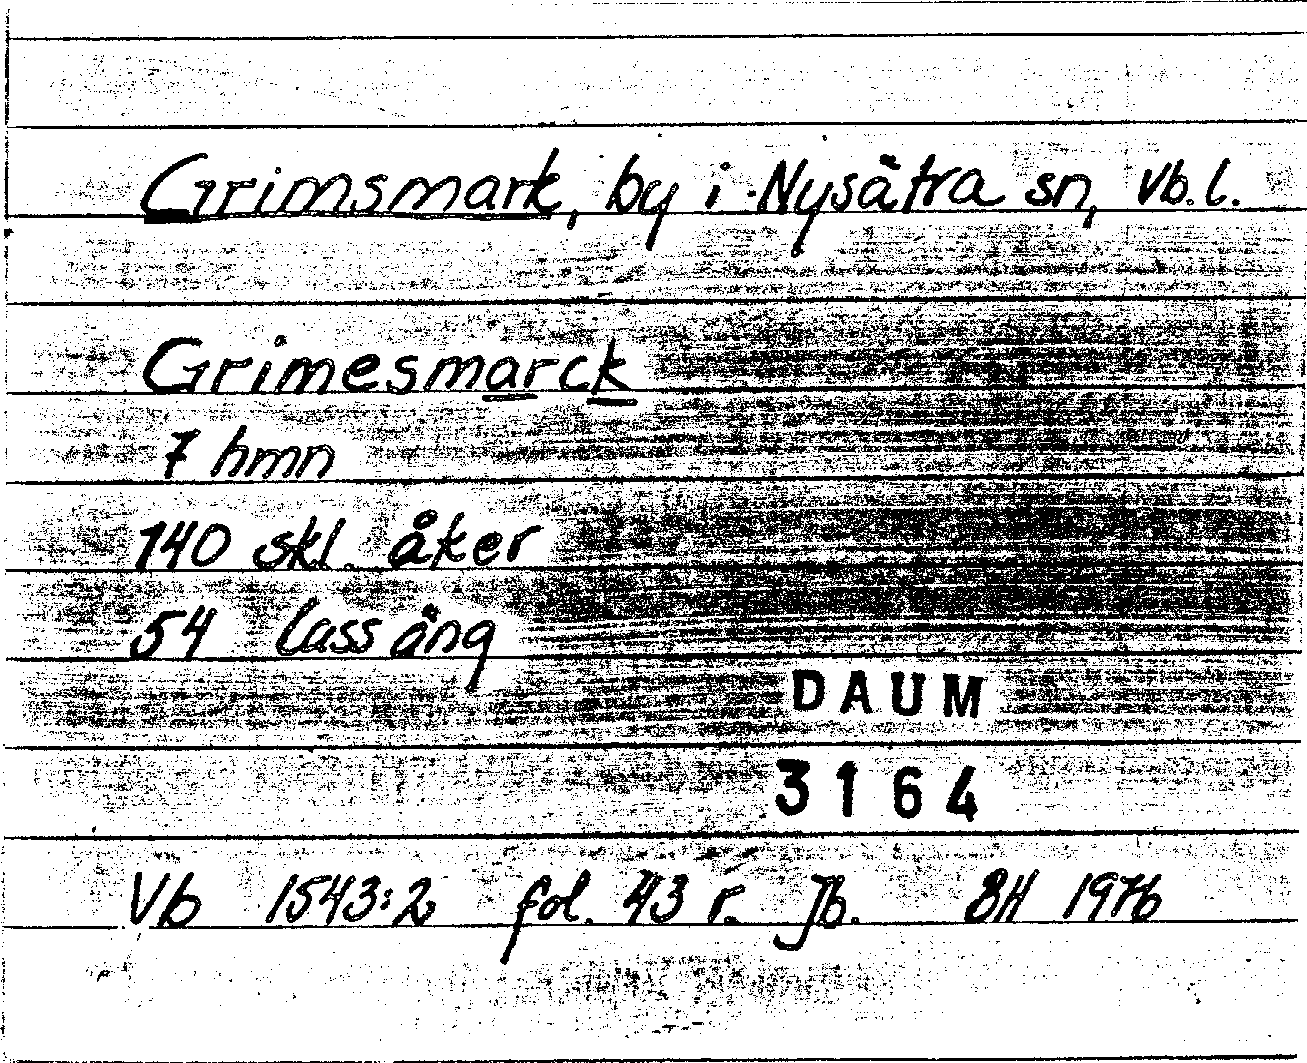 Grimsmark, by i Nysätra sn, Vb.l.
Grimesmarck
7 hmn
140 skl. åker
54 lass äng
DAUM
3164
Vb 1543:2 fol. 43 r. Jb. BH 1976